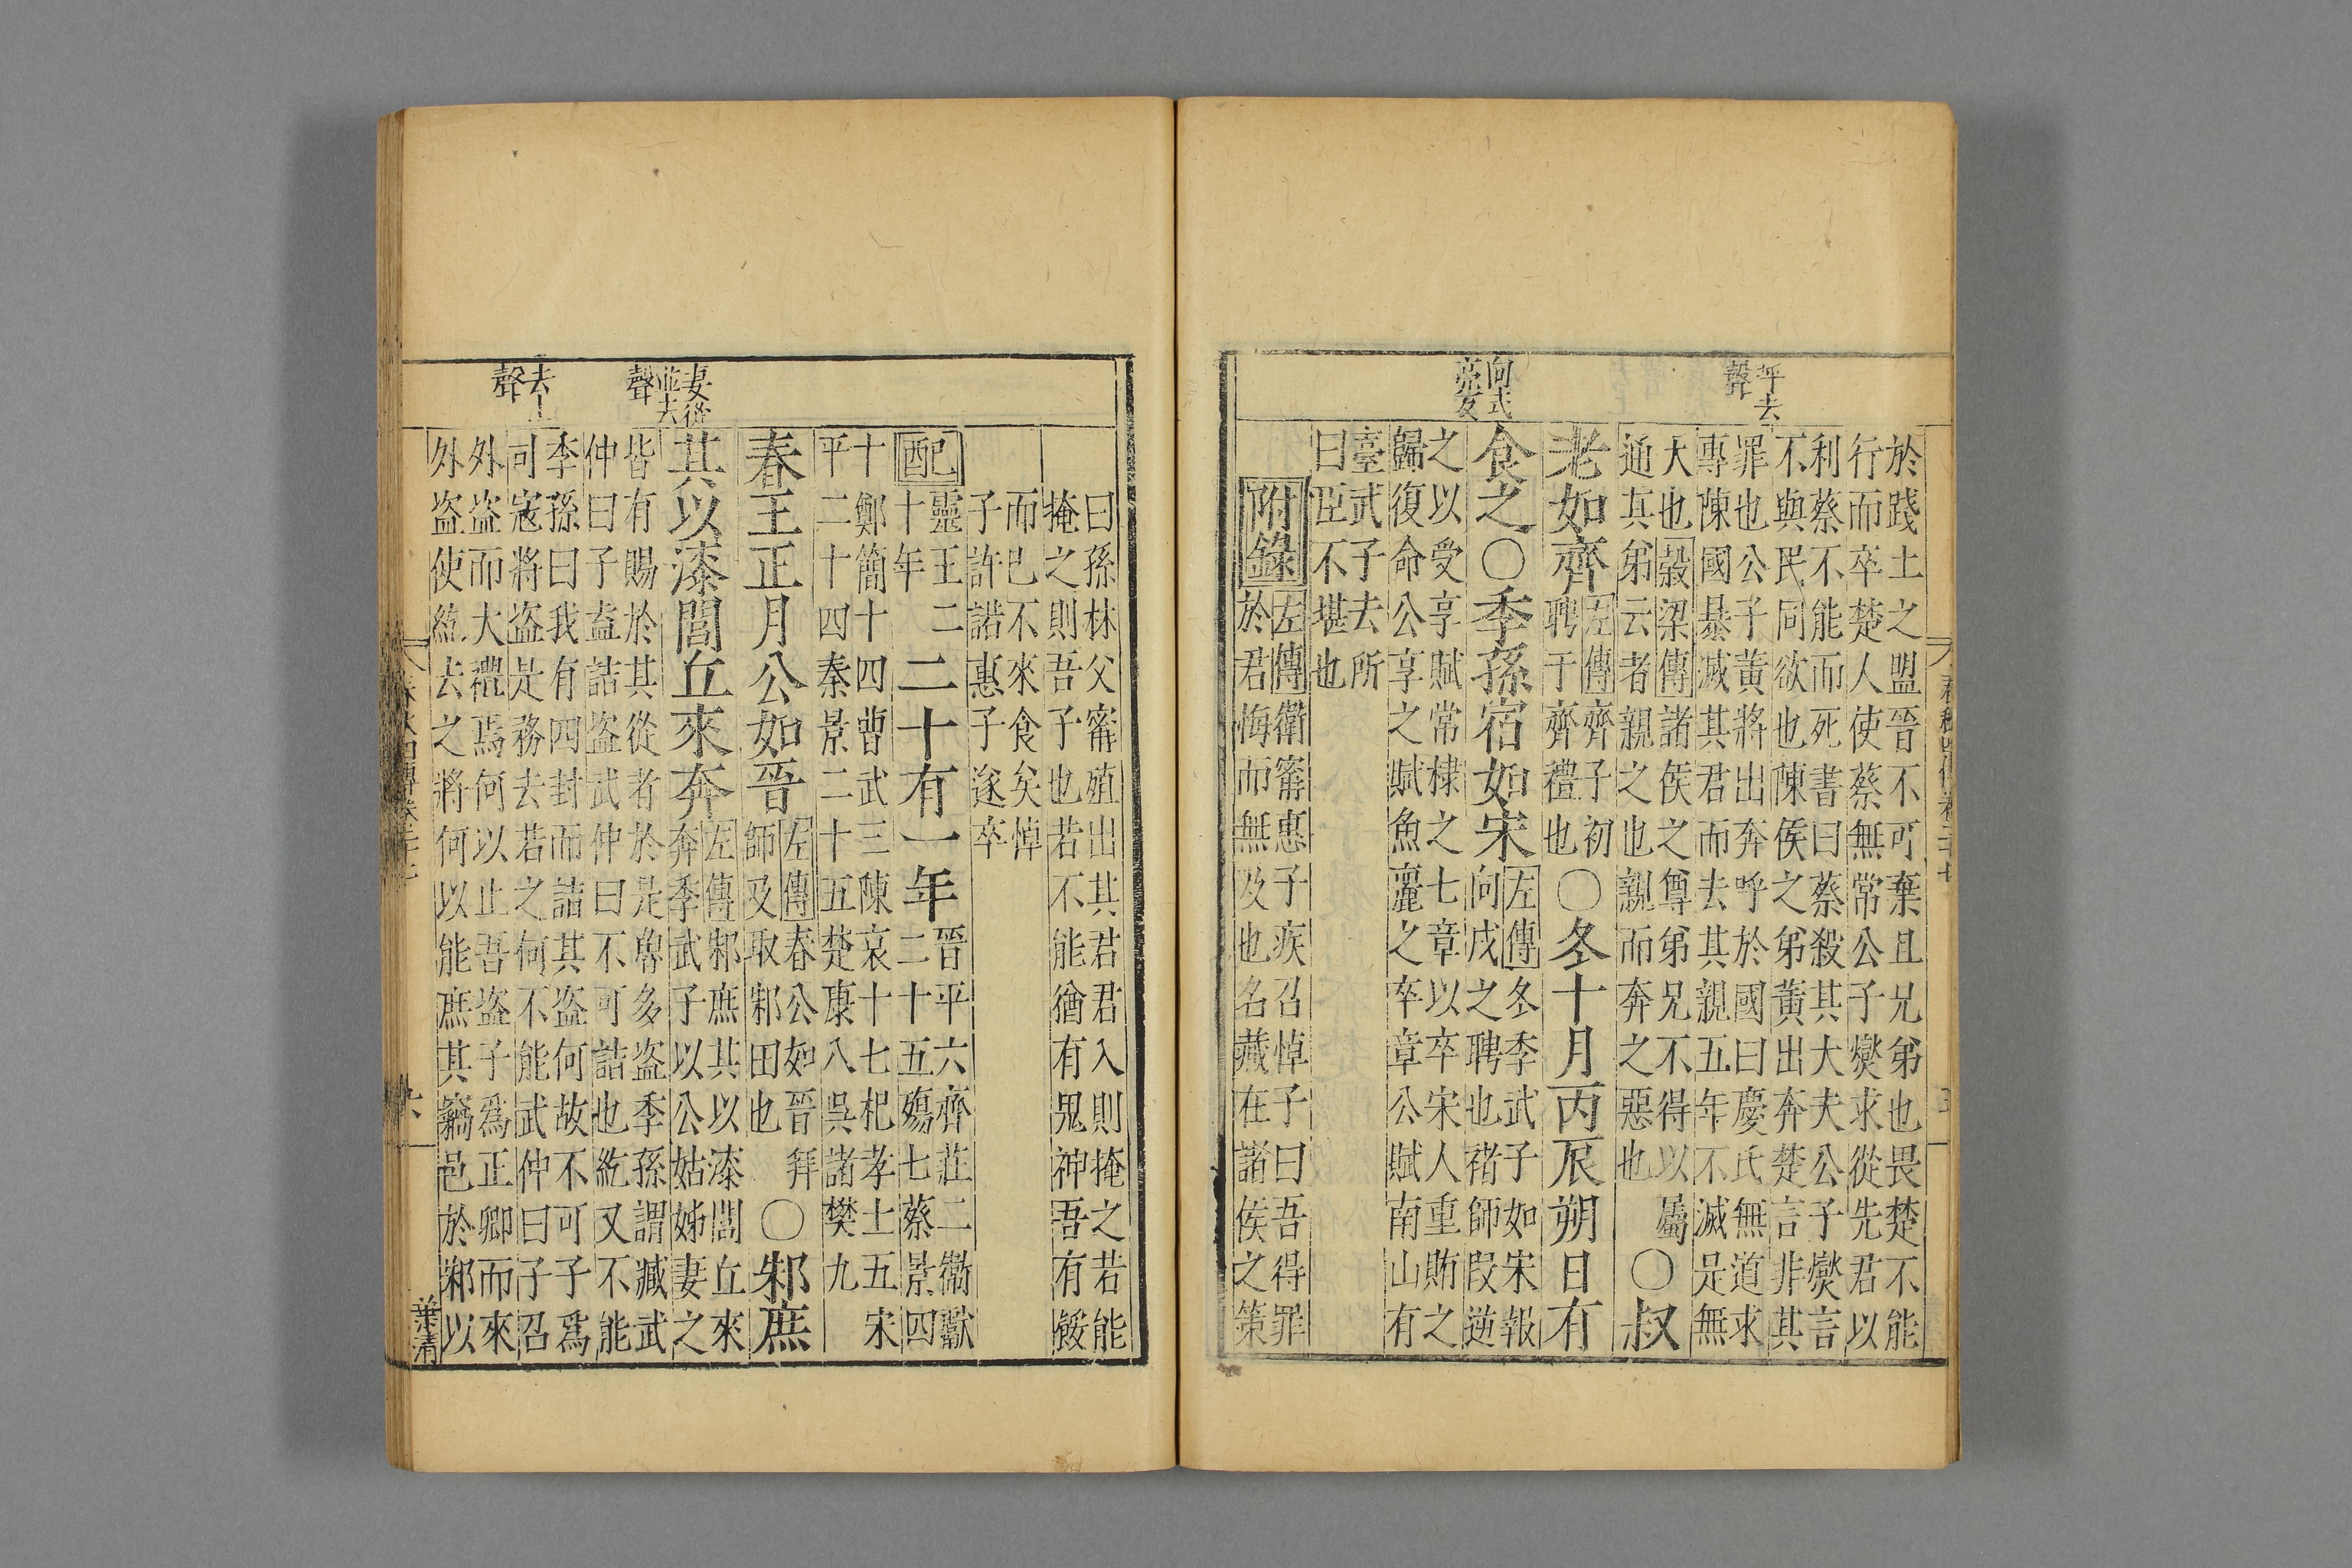 平去
聲
向式
亮反
於踐土之盟晉不可棄且兄弟也畏楚不能
行而卒楚人使蔡無常公子燮求從先君以
利蔡不能而死書曰蔡殺其大夫公子燮言
不與民同欲也陳侯之弟黃出奔楚言非其
罪也公子黃將出奔呼於國曰慶氏無道求
專陳國暴滅其君而去其親五年不滅是無
大也穀梁傳諸侯之尊弟兄不得以屬
通其弟云者親之也親而奔之惡也
〇叔
老如齊
左傳齊子初
聘于齊禮也
〇冬十月丙辰朔日有
食之〇季孫宿如宋
左傳冬季武子如宋報
向戌之聘也褚師段逆
之以受享賦常棣之七章以卒宋人重賄之
歸復命公享之賦魚麗之卒章公賦南山有
臺武子去所
曰臣不堪也
附錄
左傳衛甯惠子疾召悼子曰吾得罪
於君悔而無及也名藏在諸侯之策
妻從
並去
聲
去上
聲
曰孫林父甯殖出其君君入則掩之若能
掩之則吾子也若不能猶有鬼神吾有餒
而已不來食矣悼
子許諾惠子遂卒
配
靈王二
十年
二十有一年
晉平六齊莊二衛獻
二十五殤七蔡景四
十鄭簡十四曹武三陳哀十七杞孝十五宋
平二十四秦景二十五楚康八吳諸樊九
春王正月公如晉
左傳春公如晉拜
師及取邾田也
〇邾庶
其以漆閭丘來奔
左傳邾庶其以漆閭丘來
奔季武子以公姑姊妻之
皆有賜於其從者於是魯多盜季孫謂臧武
仲曰子盍詰盜武仲曰不可詰也紇又不能
季孫曰我有四封而詰其盜何故不可子爲
司寇將盜是務去若之何不能武仲曰子召
外盜而大禮焉何以止吾盜子爲正卿而來
外盜使紇去之將何以能庶其竊邑於邾以
葉清